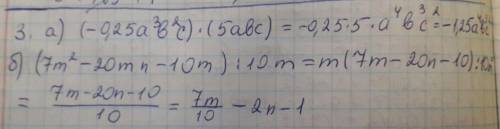 3. а) (-0,25a³b²c)·(5abc) = -0,25·5·a⁴b³c² = -1,25a⁴b³c²
б) (7m²-20mn-10m):10m = m(7m-20n-10):10m
= \frac{7m-20n-10}{10} = \frac{7m}{10} - 2n - 1